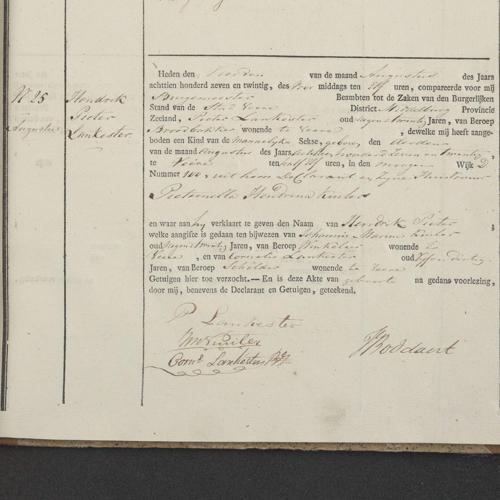 No 25
Augustus
Hendrik
Pieter
Lankester
Heden den van de maand Augustus des Jaars
achttien honderd zeven en twintig, des Voor middags ten Elf uren, compareerde voor mij
Burgemeester Beambten tot de Zaken van den Burgerlijken
Stand van de Stad Veere District Middelburg Provincie
Zeeland, Pieter Lankester oud Jaren, van Beroep
Broodbakker wonende te Veere, dewelke mij heeft aange-
boden een Kind van de Mannelijke Sekse, geboren, den
van de maand Augustus des Jaars Achttienhonderd zeven en twintig
te Veere ten half uren, in den morgen Wijk D
Nummer 100, uit hem Declarant en Zyne Huisvrouw
Pieternella Hendrina
en waar aan hij verklaart te geven den Naam van Hendrik Pieter
welke aangifte is gedaan ten bijwezen van Johannis Marinus
oud Jaren, van Beroep Winkelier wonende te
Veere, en van Cornelis Lankester oud Vijf en dertig
Jaren, van Beroep Schilder wonende te Veere
Getuigen hier toe verzocht.—En is deze Akte van geboorte na gedane voorlezing,
door mij, benevens de Declarant en Getuigen, geteekend.
P Lankester
Corns. Lankester
Boddaert